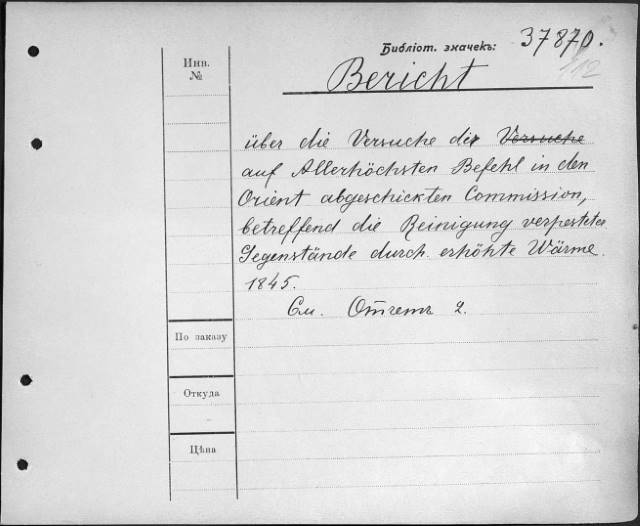 Библіот. значекъ: 37870.
112
Bericht
Инв.
№
über die Versuche der Versuche
auf Allerhöchsten Befehl in den
Orient abgeschickten Commission,
betreffend die Reinigung verpesteter
Gegenstände durch erhöhte Wärme.
1845.
См. Отчетъ 2.
По заказу
Откуда
Цѣна